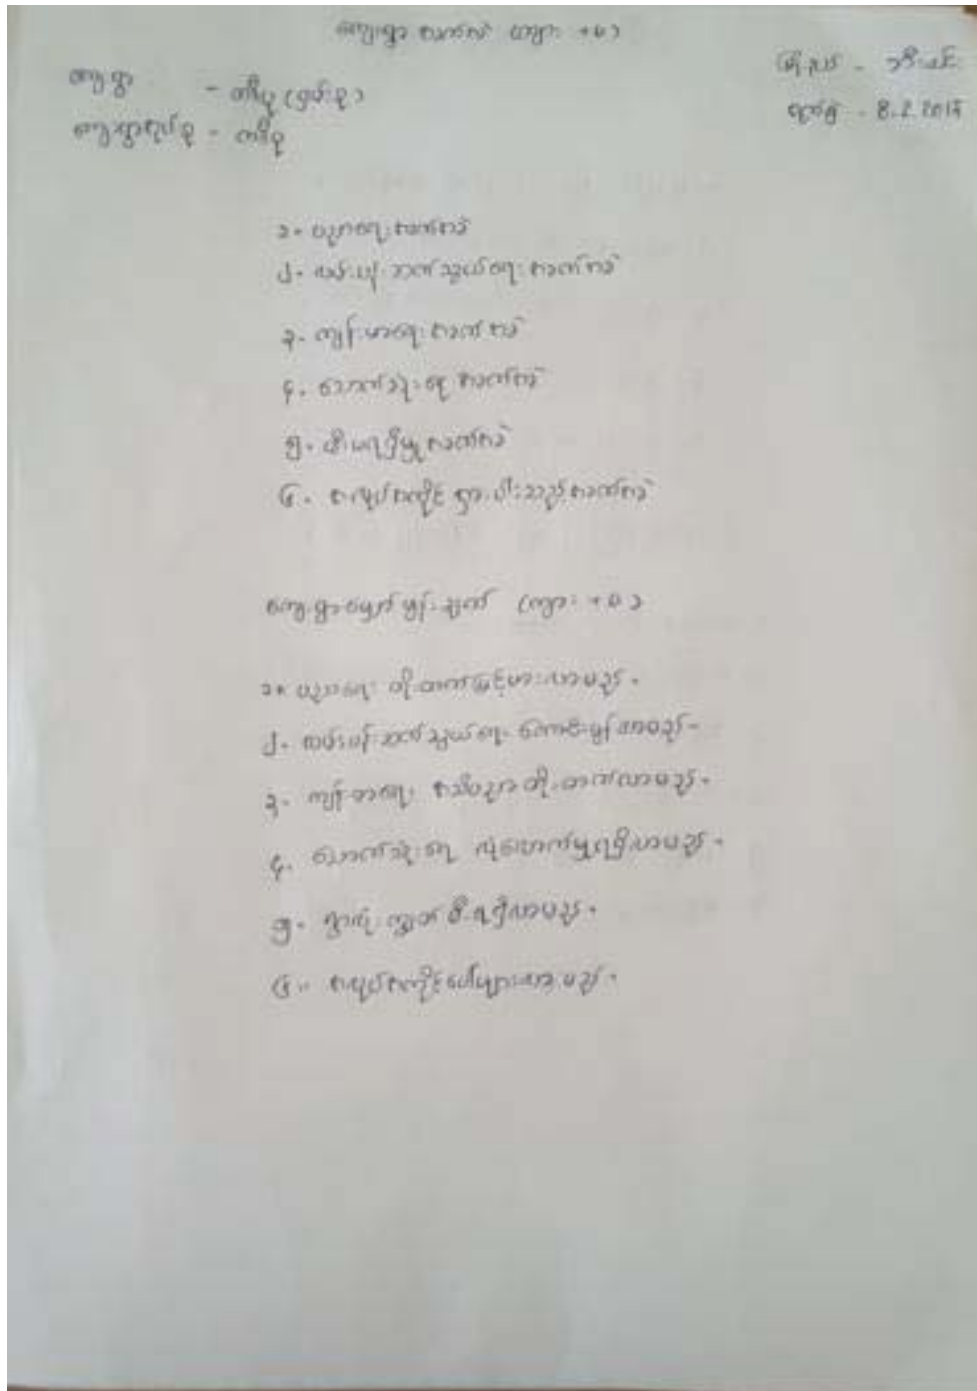 ကျေးရွာ အခက်အခဲ (ကျား + မ)
ကျေးရွာ - တီပု (ရှမ်းစု)
ကျေးရွာအုပ်စု -
မြို့နယ် -
နေ့စွဲ - 8.2.2015
၁။ ပညာရေးအခက်အခဲ
၂။ လမ်းပန်းဆက်သွယ်ရေးအခက်အခဲ
၃။ ကျန်းမာရေးအခက်အခဲ
၄။ သောက်သုံးရေအခက်အခဲ
၅။ မီးမရရှိမှုအခက်အခဲ
၆။ အလုပ်အကိုင်ရှားပါးသည့်အခက်အခဲ
ကျေးရွာမျှော်မှန်းချက် (ကျား + မ)
၁။ ပညာရေး တိုးတက်မြင့်မားလာမည်။
၂။ လမ်းပန်းဆက်သွယ်ရေး ကောင်းမွန်လာမည်။
၃။ ကျန်းမာရေး အသိပညာတိုးတက်လာမည်။
၄။ သောက်သုံးရေ လုံလောက်မှုရရှိလာမည်။
၅။ ရွာလုံးကျွတ် မီးရရှိလာမည်။
၆။ အလုပ်အကိုင်ပေါများလာမည်။